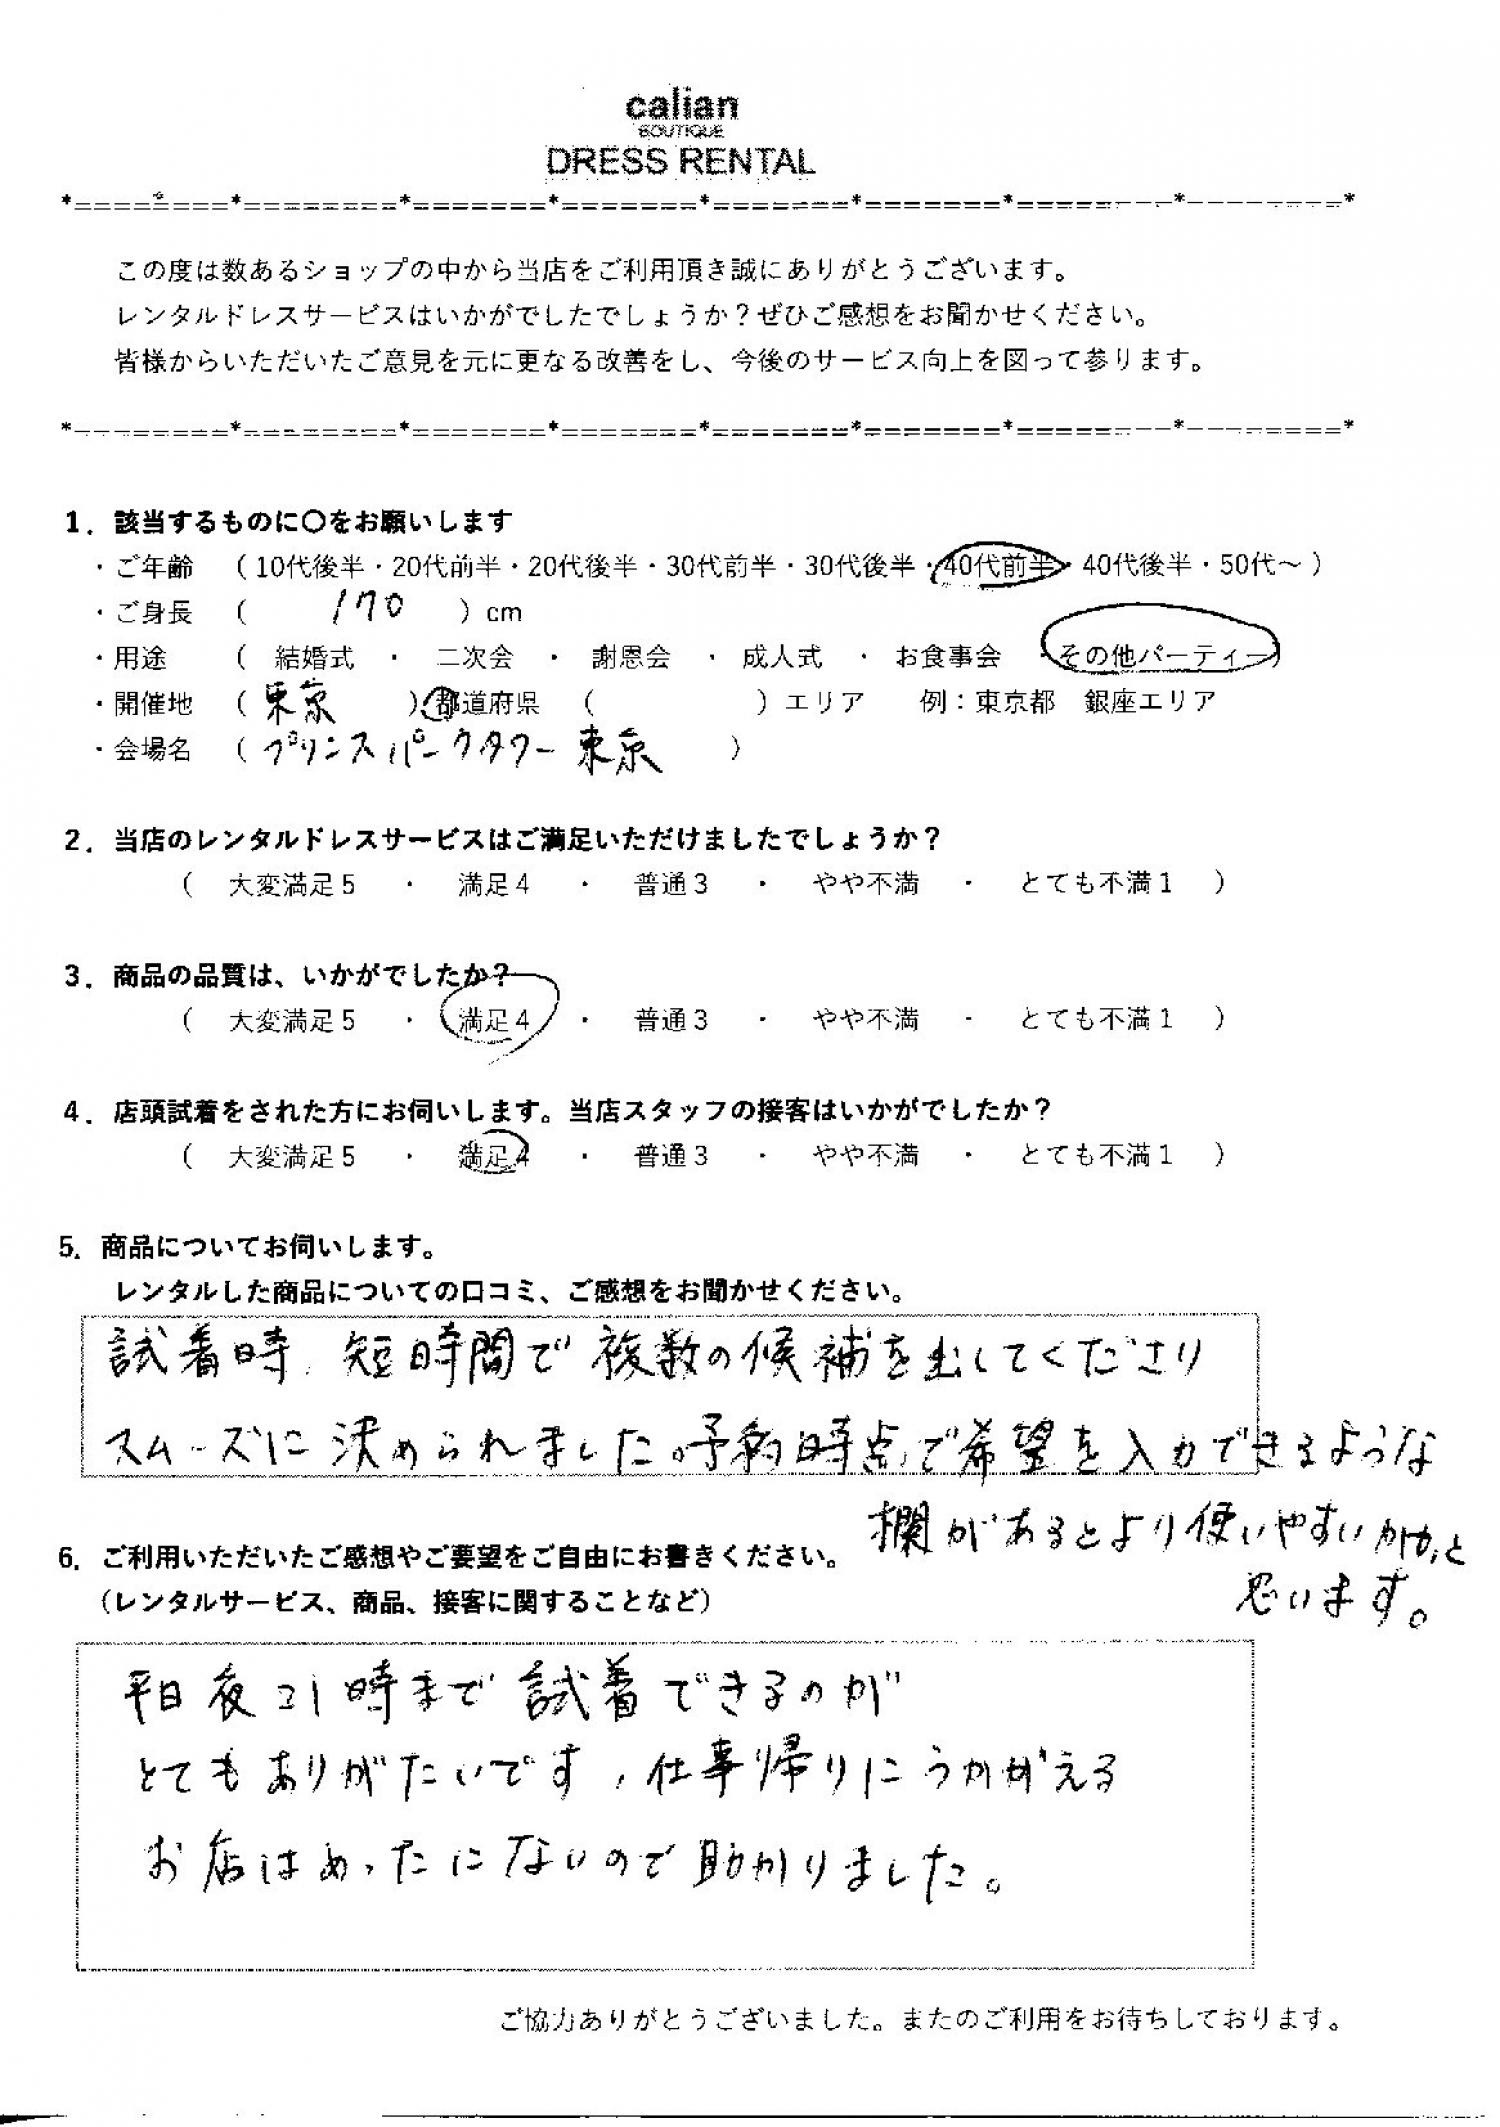 calian
BOUTIQUE
DRESS RENTAL
*========*========*=======*=======*=======*=======*========*========*
この度は数あるショップの中から当店をご利用頂き誠にありがとうございます。
レンタルドレスサービスはいかがでしたでしょうか？ぜひご感想をお聞かせください。
皆様からいただいたご意見を元に更なる改善をし、今後のサービス向上を図って参ります。
*========*========*=======*=======*=======*=======*========*========*
1．該当するものに〇をお願いします
・ご年齢 （ 10代後半・20代前半・20代後半・30代前半・30代後半・40代前半・40代後半・50代～ ）
・ご身長 （ 170 ）cm
・用途 （ 結婚式 ・ 二次会 ・ 謝恩会 ・ 成人式 ・ お食事会 ・その他パーティー）
・開催地 （ 東京 ）都道府県 （ ）エリア 例：東京都 銀座エリア
・会場名 （ プリンスパークタワー東京 ）
2．当店のレンタルドレスサービスはご満足いただけましたでしょうか？
（ 大変満足５ ・ 満足４ ・ 普通３ ・ やや不満 ・ とても不満１ ）
3．商品の品質は、いかがでしたか？
（ 大変満足５ ・ 満足４ ・ 普通３ ・ やや不満 ・ とても不満１ ）
4．店頭試着をされた方にお伺いします。当店スタッフの接客はいかがでしたか？
（ 大変満足５ ・ 満足４ ・ 普通３ ・ やや不満 ・ とても不満１ ）
5．商品についてお伺いします。
レンタルした商品についての口コミ、ご感想をお聞かせください。
試着時、短時間で複数の候補を出してくださり
スムーズに決められました。予約時点で希望を入力できるような
欄があるとより使いやすいかと
思います。
6．ご利用いただいたご感想やご要望をご自由にお書きください。
（レンタルサービス、商品、接客に関することなど）
平日夜21時まで試着できるのが
とてもありがたいです、仕事帰りにうかがえる
お店はめったにないので助かりました。
ご協力ありがとうございました。またのご利用をお待ちしております。